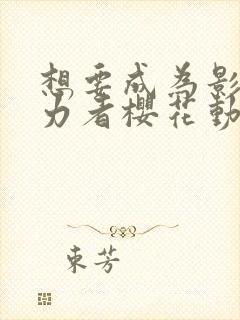 想要成为影
力者櫻花動
東芳